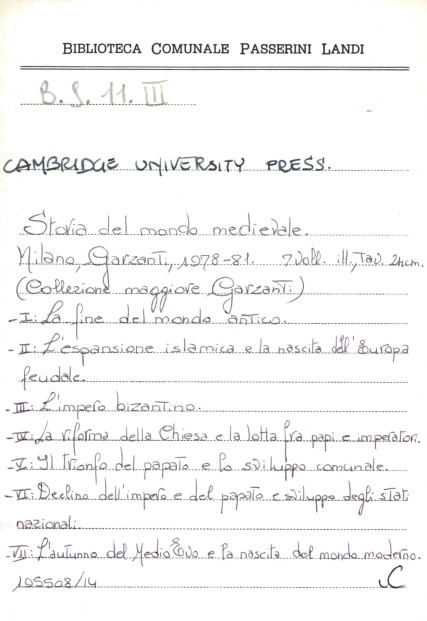 BIBLIOTECA COMUNALE PASSERINI LANDI
B. S. 11. III
CAMBRIDGE UNIVERSITY PRESS.
Storia del mondo medievale.
Milano, Garzanti, 1978-81. 7 voll. ill., Tav. 24cm.
(Collezione maggiore Garzanti)
- I: La fine del mondo antico.
- II: L'espansione islamica e la nascita dell'Europa
feudale.
- III: L'impero bizantino.
- IV: La riforma della Chiesa e la lotta fra papi e imperatori.
- V: Il trionfo del papato e lo sviluppo comunale.
- VI: Declino dell'impero e del papato e sviluppo degli stati
nazionali.
- VII: L'autunno del Medio Evo e la nascita del mondo moderno.
105508/14